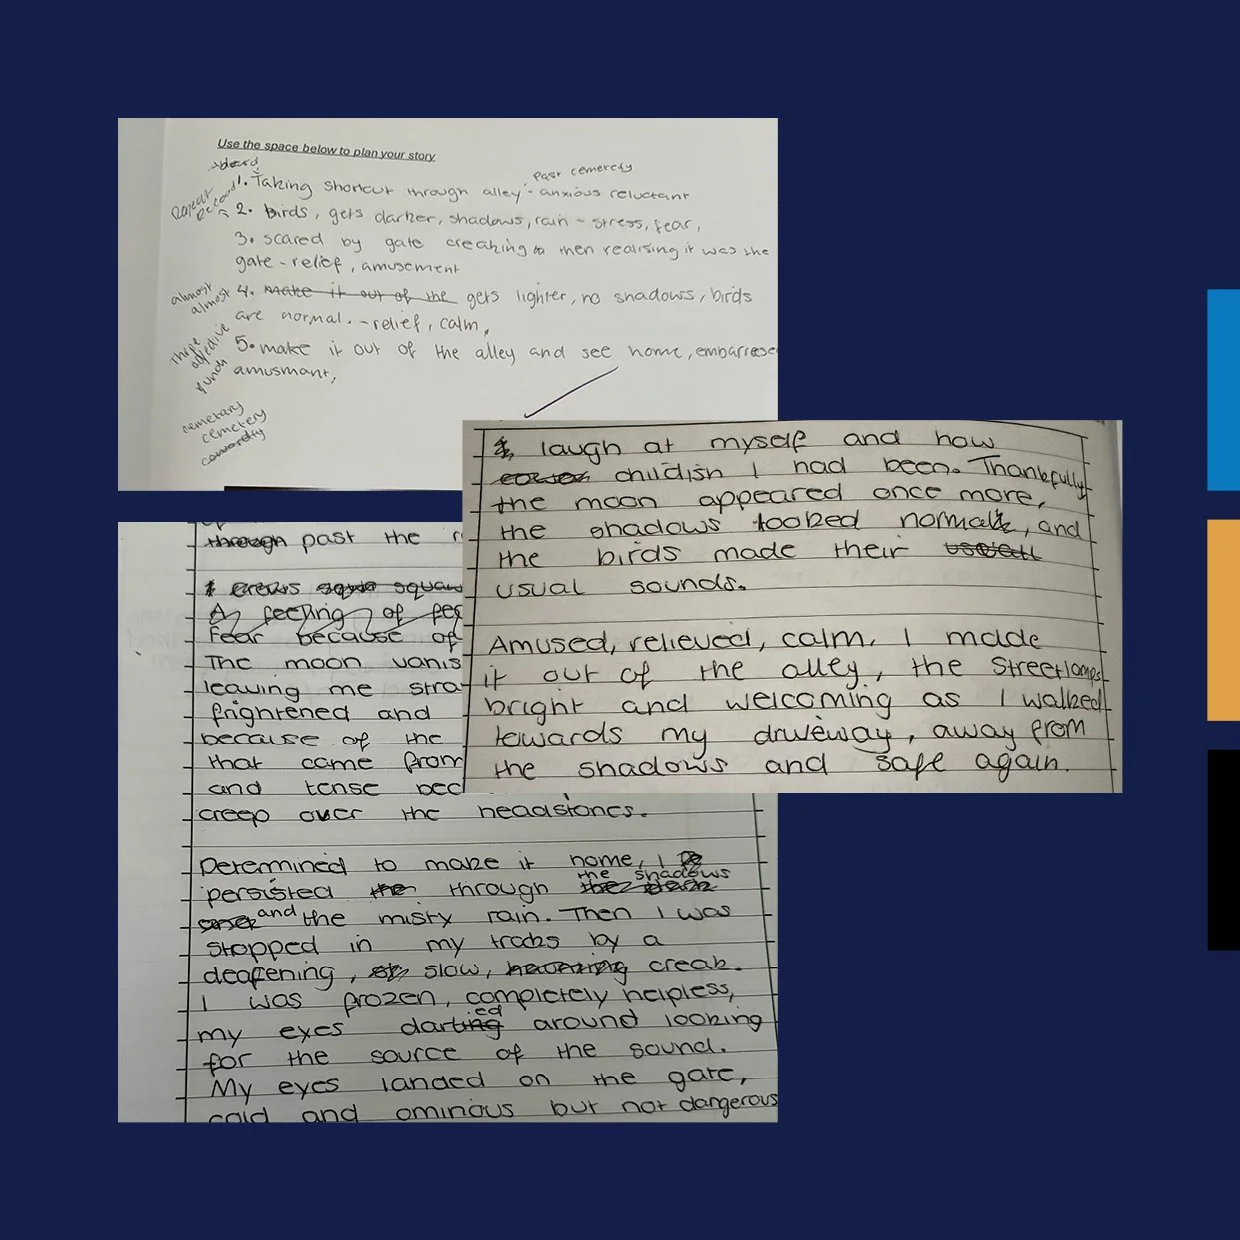 Use the space below to plan your story
past cemerety
1. Taking shortcut through alley - anxious reluctant
2. birds, gets darker, shadows, rain - stress, fear,
3. scared by gate creaking then realising it was the
gate - relief, amusement
almost
almost
4. make it out of the gets lighter, no shadows, birds
are normal. - relief, calm,
5. make it out of the alley and see home, embarrese
amusmant,
cemetary
cemetery
laugh at myself and how
childish I had been. Thankfully
the moon appeared once more,
the shadows looked normal, and
the birds made their
usual sounds.
Amused, relieved, calm, I made
it out of the alley, the streetlamps
bright and welcoming as I walked
towards my driveway, away from
the shadows and safe again.
through past the
crows squaw
A feeling of fe
Fear because of
The moon vanis
leaving me stra
frightened and
because of the
that came from
and tense bec
creep over the headstones.
Determined to make it home, I
the shadows
persisted the through
and the misty rain. Then I was
stopped in my tracks by a
deafening, slow, creak.
I was frozen, completely helpless,
ed
my eyes darting around looking
for the source of the sound.
My eyes landed on the gate,
cold and ominous but not dangerous